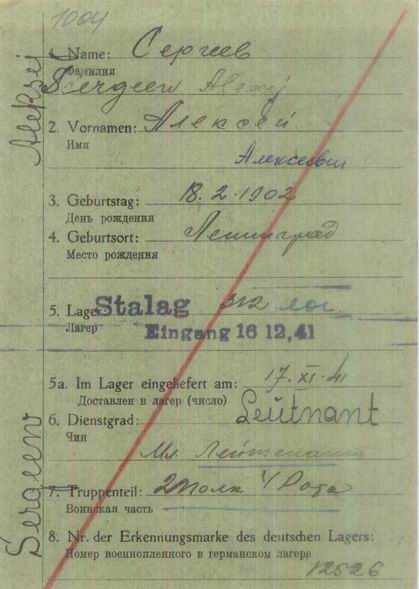 1004
1. Name: Сергеев
Фамилия
Sergeew Alexej
2. Vornamen: Алексей
Имя
Алексеевич
3. Geburtstag: 18.2.1902
День рождения
4. Geburtsort: Ленинград
Место рождения
5. Lager: Stalag 312
Лагерь
Eingang 16 12.41
5a. Im Lager eingeliefert am: 17.XI.41
Доставлен в лагерь (число)
6. Dienstgrad: Leutnant
Чин
Мл. Лейтенант
7. Truppenteil: 2 Полк 4 Рота
Воинская часть
8. Nr. der Erkennungsmarke des deutschen Lagers:
Номер военнопленного в германском лагере
12526
Aleksej
Sergeew